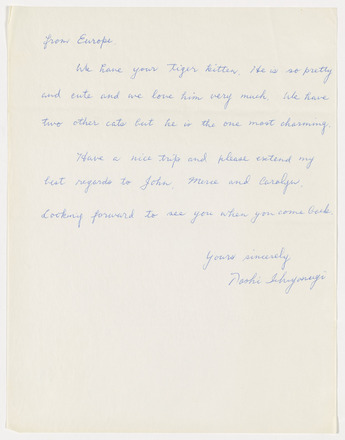 from Europe.
We have your Tiger kitten. He is so pretty
and cute and we love him very much. We have
two other cats but he is the one most charming.
Have a nice trip and please extend my
best regards to John, Merce and Carolyn.
Looking forward to see you when you come back.
Yours sincerely
Toshi Ichiyanagi